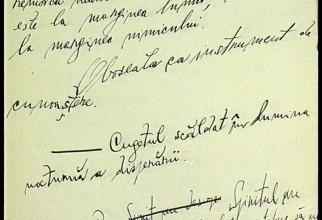 este la marginea lumii,
la marginea nimicului.
Oboseala ca instrument de
cunoaștere.
Cugetul scăldat în lumina
nocturnă a disperării.
Spiritul